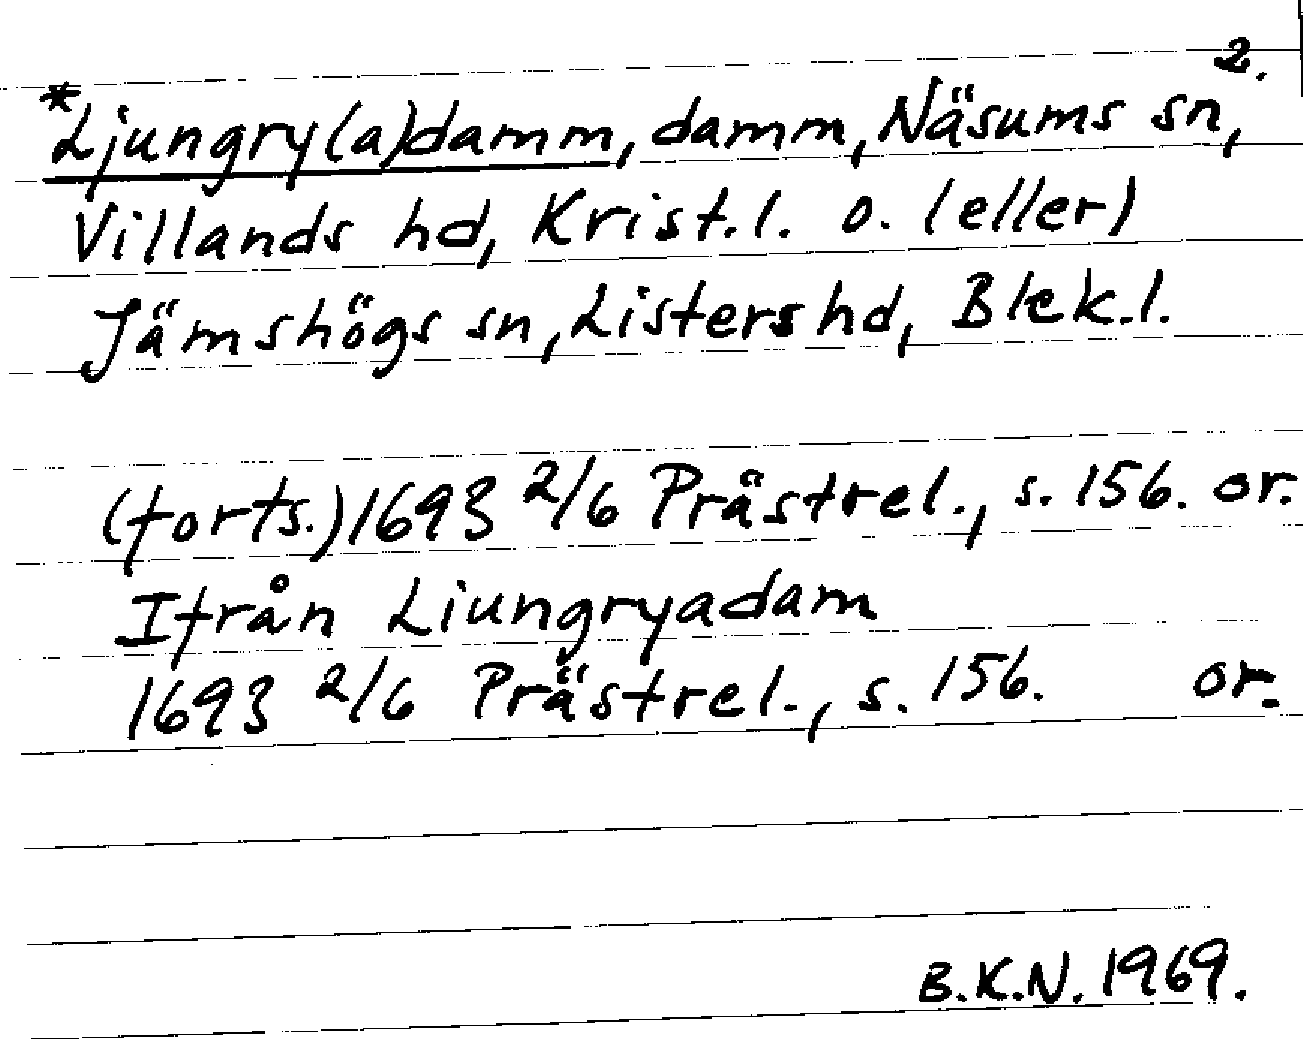 2.
*Ljungry(a)damm, damm, Näsums sn,
Villands hd, Krist.l. o. (eller)
Jämshögs sn, Listers hd, Blek.l.
(forts.) 1693 2/6 Prästrel., s. 156. or.
Ifrån Liungryadam
1693 2/6 Prästrel., s. 156. or.
B.K.N. 1969.